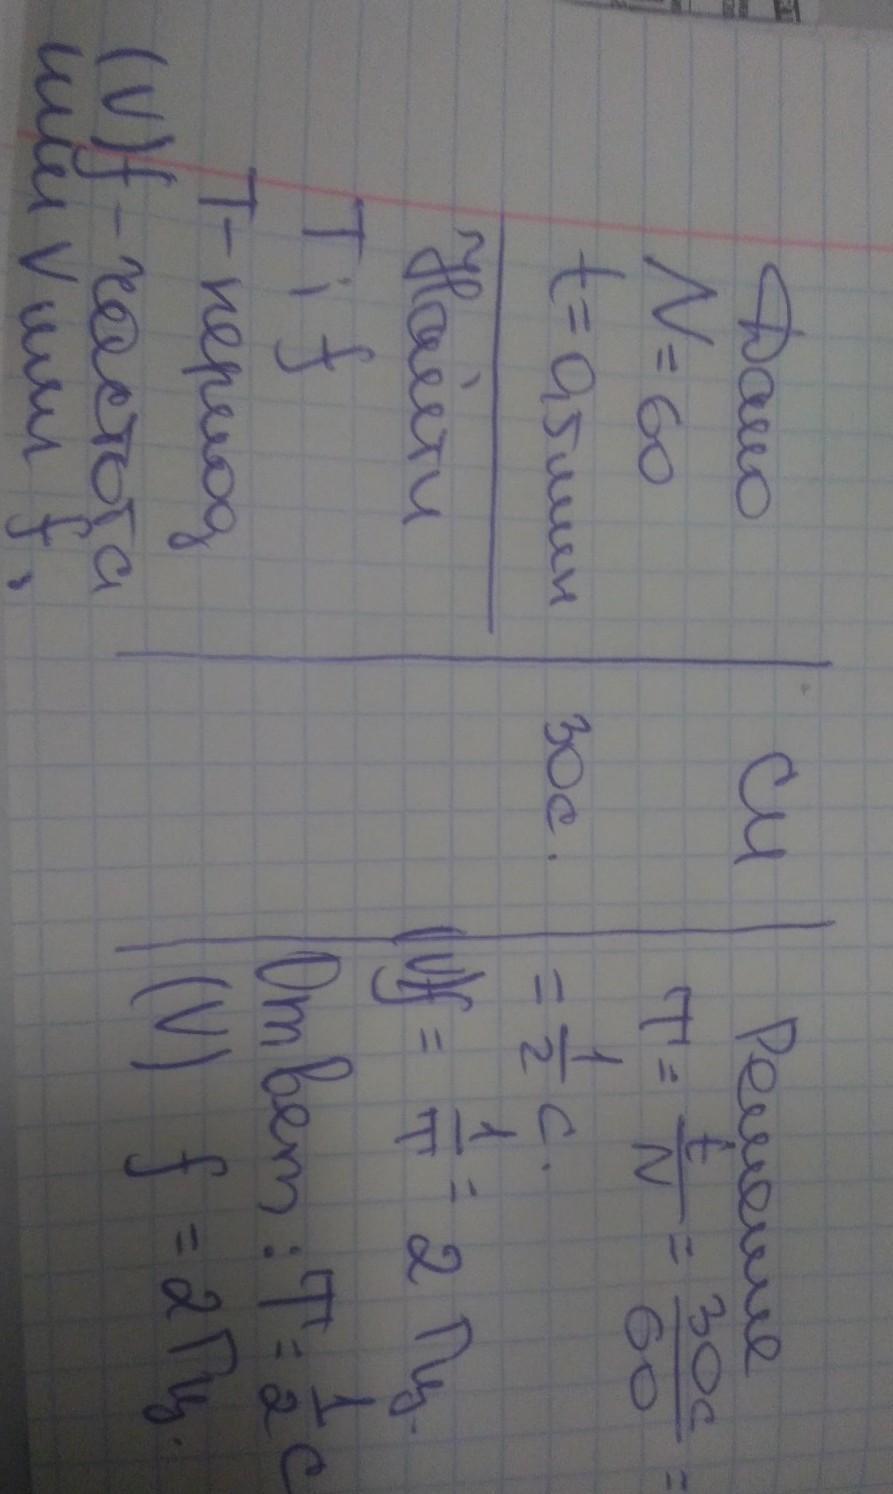 Дано
N = 60
t = 0,5 мин
Найти
T; f
T - период
(ν) f - частота
или ν или f,
СИ
30 с.
Решение
T = t/N = 30с/60 =
= 1/2 с.
(ν) f = 1/T = 2 Гц.
Ответ: T = 1/2 с
(ν) f = 2 Гц.